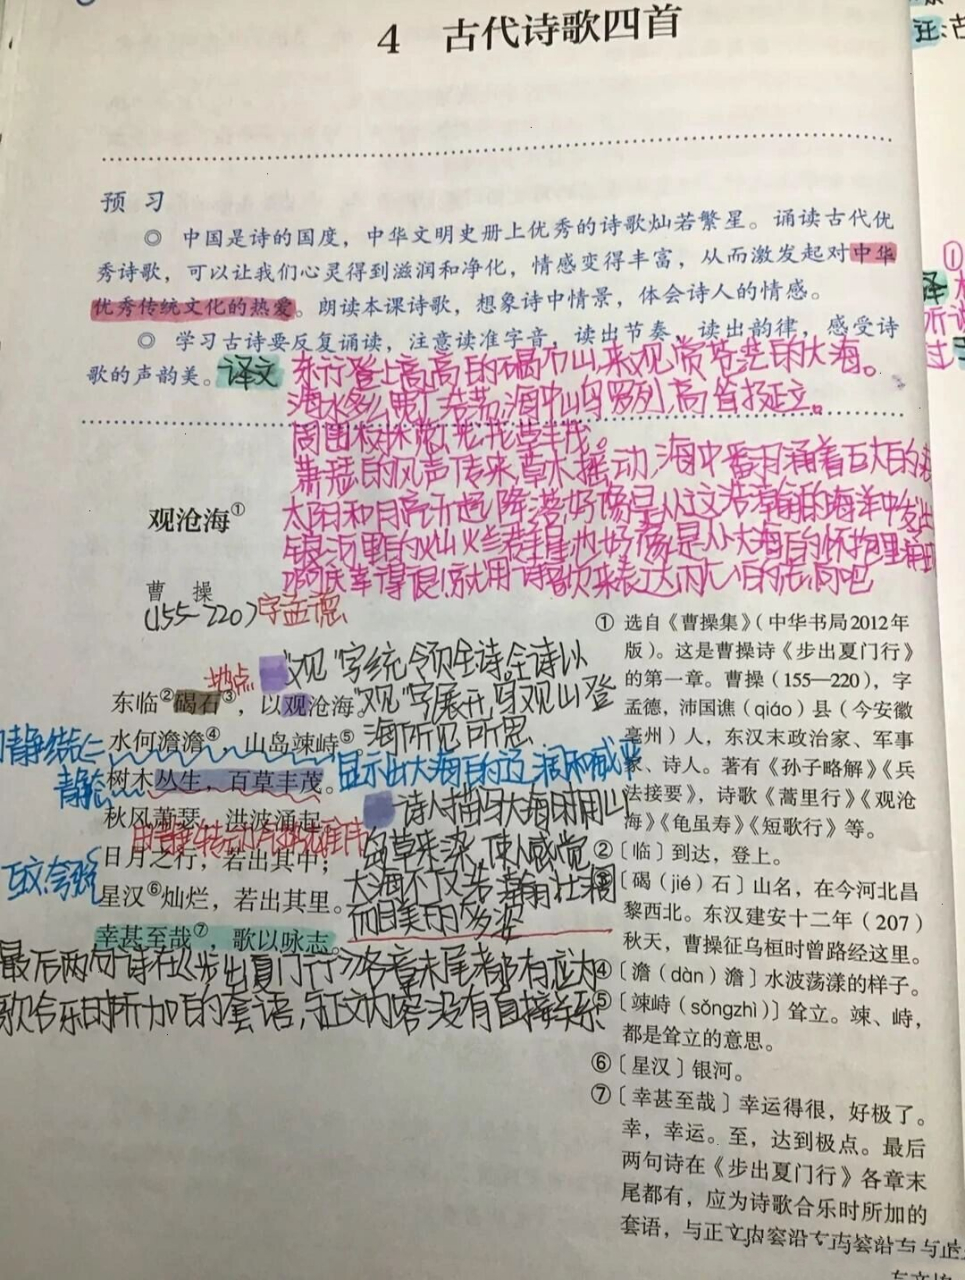 4 古代诗歌四首
汪:古
预 习
◎ 中国是诗的国度，中华文明史册上优秀的诗歌灿若繁星。诵读古代优
秀诗歌，可以让我们心灵得到滋润和净化，情感变得丰富，从而激发起对中华
优秀传统文化的热爱。朗读本课诗歌，想象诗中情景，体会诗人的情感。
◎ 学习古诗要反复诵读，注意读准字音，读出节奏，读出韵律，感受诗
歌的声韵美。
译文 东行登上高高的碣石山,来观赏苍茫的大海。
海水多么宽广浩荡,海中山岛罗列,高耸挺立。
周围树木葱茏,花草丰茂。
萧瑟的风声传来,草木摇动,海中翻涌着巨大的
太阳和月亮升起降落,好像是从这浩瀚的海洋中发出
银河里的灿烂群星,也好像是从大海的怀抱里涌现
啊,庆幸得很!就用诗歌来表达内心的志向吧
观沧海①
曹 操
(155-220)字孟德
地点
东临②碣石③，以观沧海。
水何澹澹④，山岛竦峙⑤。
树木丛生，百草丰茂。
秋风萧瑟，洪波涌起。
日月之行，若出其中；
星汉⑥灿烂，若出其里。
幸甚至哉⑦，歌以咏志。
"观"字统领全诗,全诗以
"观"字展开,写观山登
海所见所思
显示出大海的辽阔和威严
诗人描写大海时用山
岛草来染,使人感觉
大海不仅浩瀚壮阔
而且美丽多姿
静
互文,夸张
最后两句诗在《步出夏门行》各章末尾都有,应为
歌合乐时所加的套语,与正文内容没有直接关系
① 选自《曹操集》（中华书局2012年
版）。这是曹操诗《步出夏门行》
的第一章。曹操（155—220），字
孟德，沛国谯（qiáo）县（今安徽
亳州）人，东汉末政治家、军事
家、诗人。著有《孙子略解》《兵
法接要》，诗歌《蒿里行》《观沧
海》《龟虽寿》《短歌行》等。
②〔临〕到达，登上。
③〔碣（jié）石〕山名，在今河北昌
黎西北。东汉建安十二年（207）
秋天，曹操征乌桓时曾路经这里。
④〔澹（dàn）澹〕水波荡漾的样子。
⑤〔竦峙（sǒngzhì）〕耸立。竦、峙，
都是耸立的意思。
⑥〔星汉〕银河。
⑦〔幸甚至哉〕幸运得很，好极了。
幸，幸运。至，达到极点。最后
两句诗在《步出夏门行》各章末
尾都有，应为诗歌合乐时所加的
套语，与正文内容没